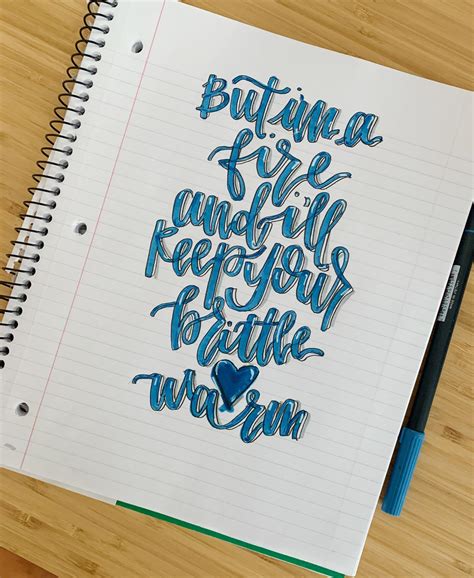 But im a
fire
and ill
Keep your
brittle
warm